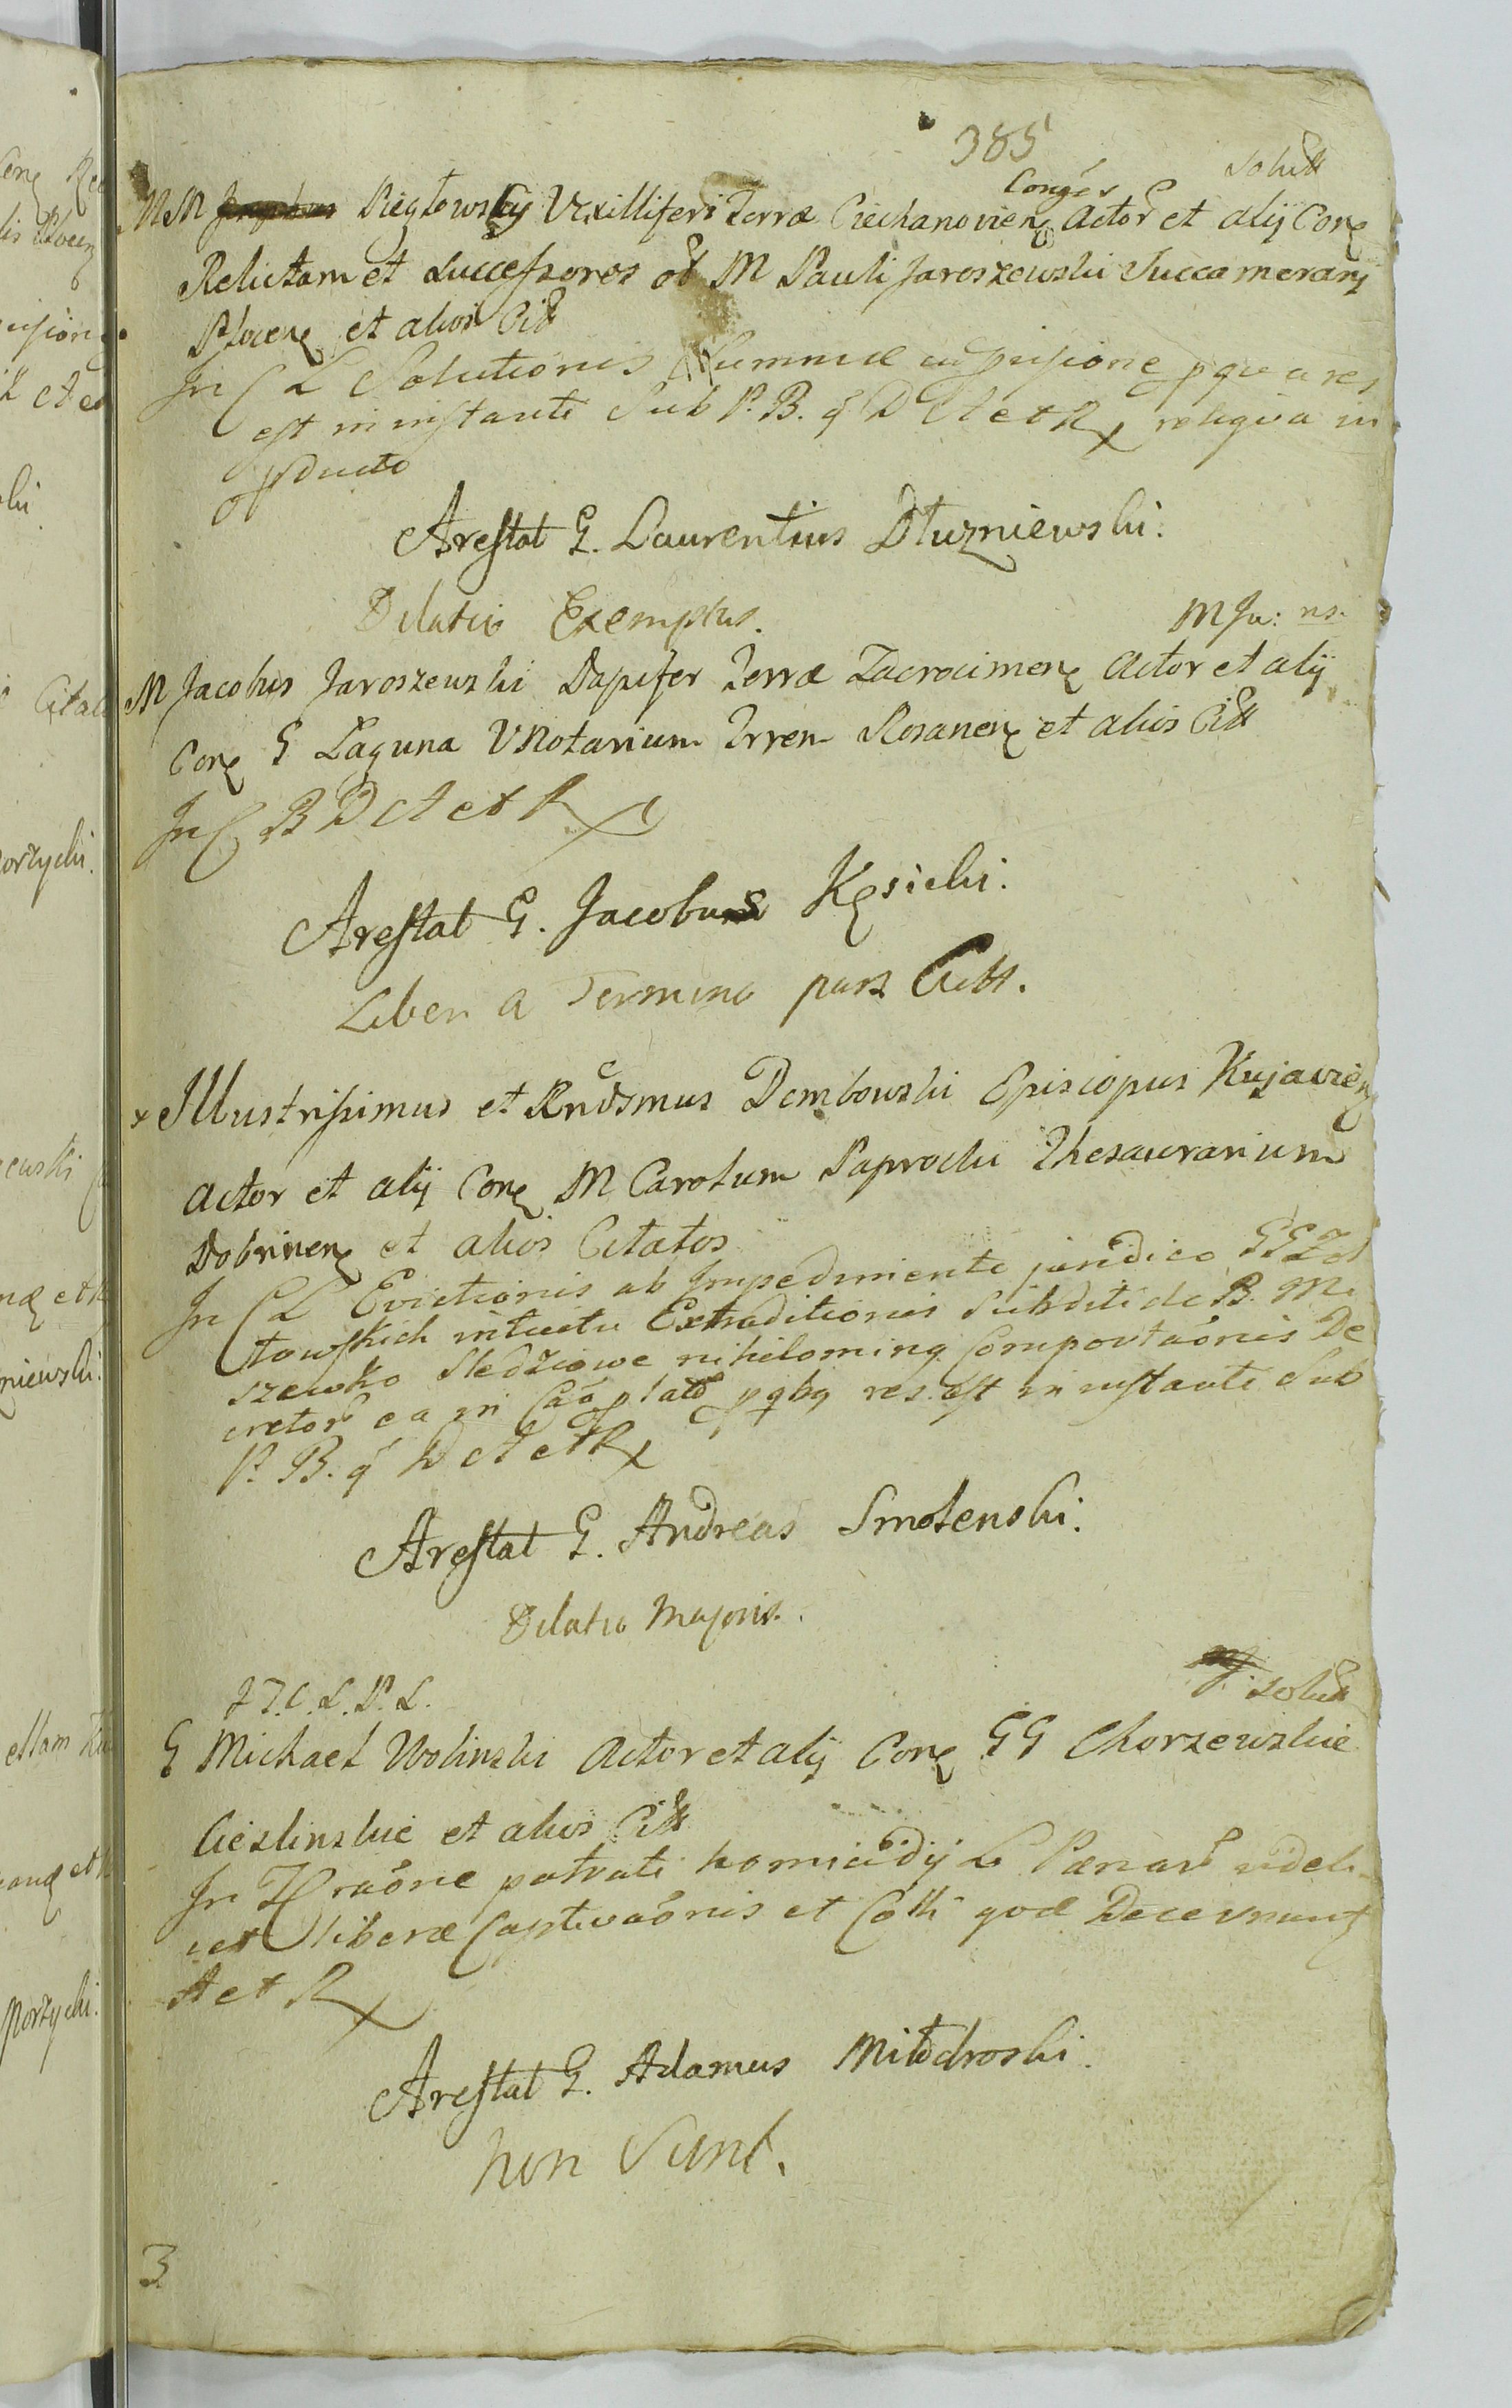 385
Conges solutt
MM Pięgłowskij Vexilliferi Terræ Ciechanovien Actor et alij Con
Relictam et Successores ol M Pauli Jaroszewski Succamerarij
Plocen et alios Citt
In C L Solutionis Summæ res
est in instanti Sub P. B. q D A et R reliqua in
pducto
Arestat G. Laurentius Dłuzniewski.
Dilatio Exemplus.
M Ja: ns.
M Jacobus Jaroszewski Dapifer Terræ Zacrocimen Actor et alij
Con G Laguna VNotarium Trren Rosanen et alios Citt
In C B D A et R
Arestat G. Jacobus Kęsicki.
Liber a Termino pars Citt.
Illustrissimus et Rndsmus Dembowski Episcopus Kujavien
Actor et alij Con M Carolum Paprocki Thesaurarium
Dobrinen et alios Citatos
In C L Evictionis ab Impedimento juridico GG
towskich intuitu Extraditionis Subditi de B. Mi
szewko Sledziowe nihilominq Comportaonis De
cretor ea in Cao plat p qbq res est in instanti Sub
P. B. q D A et R
Arestat G. Andreas Smolenski.
Dilatio Majoris.
J. T. C. L. P. L.
solutt
G Michael Wolinski Actor et alij Con GG Chorzewskie
Cieslinskie et alios Citt
In raone patrati homicidij L Pænar videli
cet liberæ Captivaonis et Colli quæ Decernunt
A et R
Arestat G. Adamus Miłodroski.
non Sunt.
3